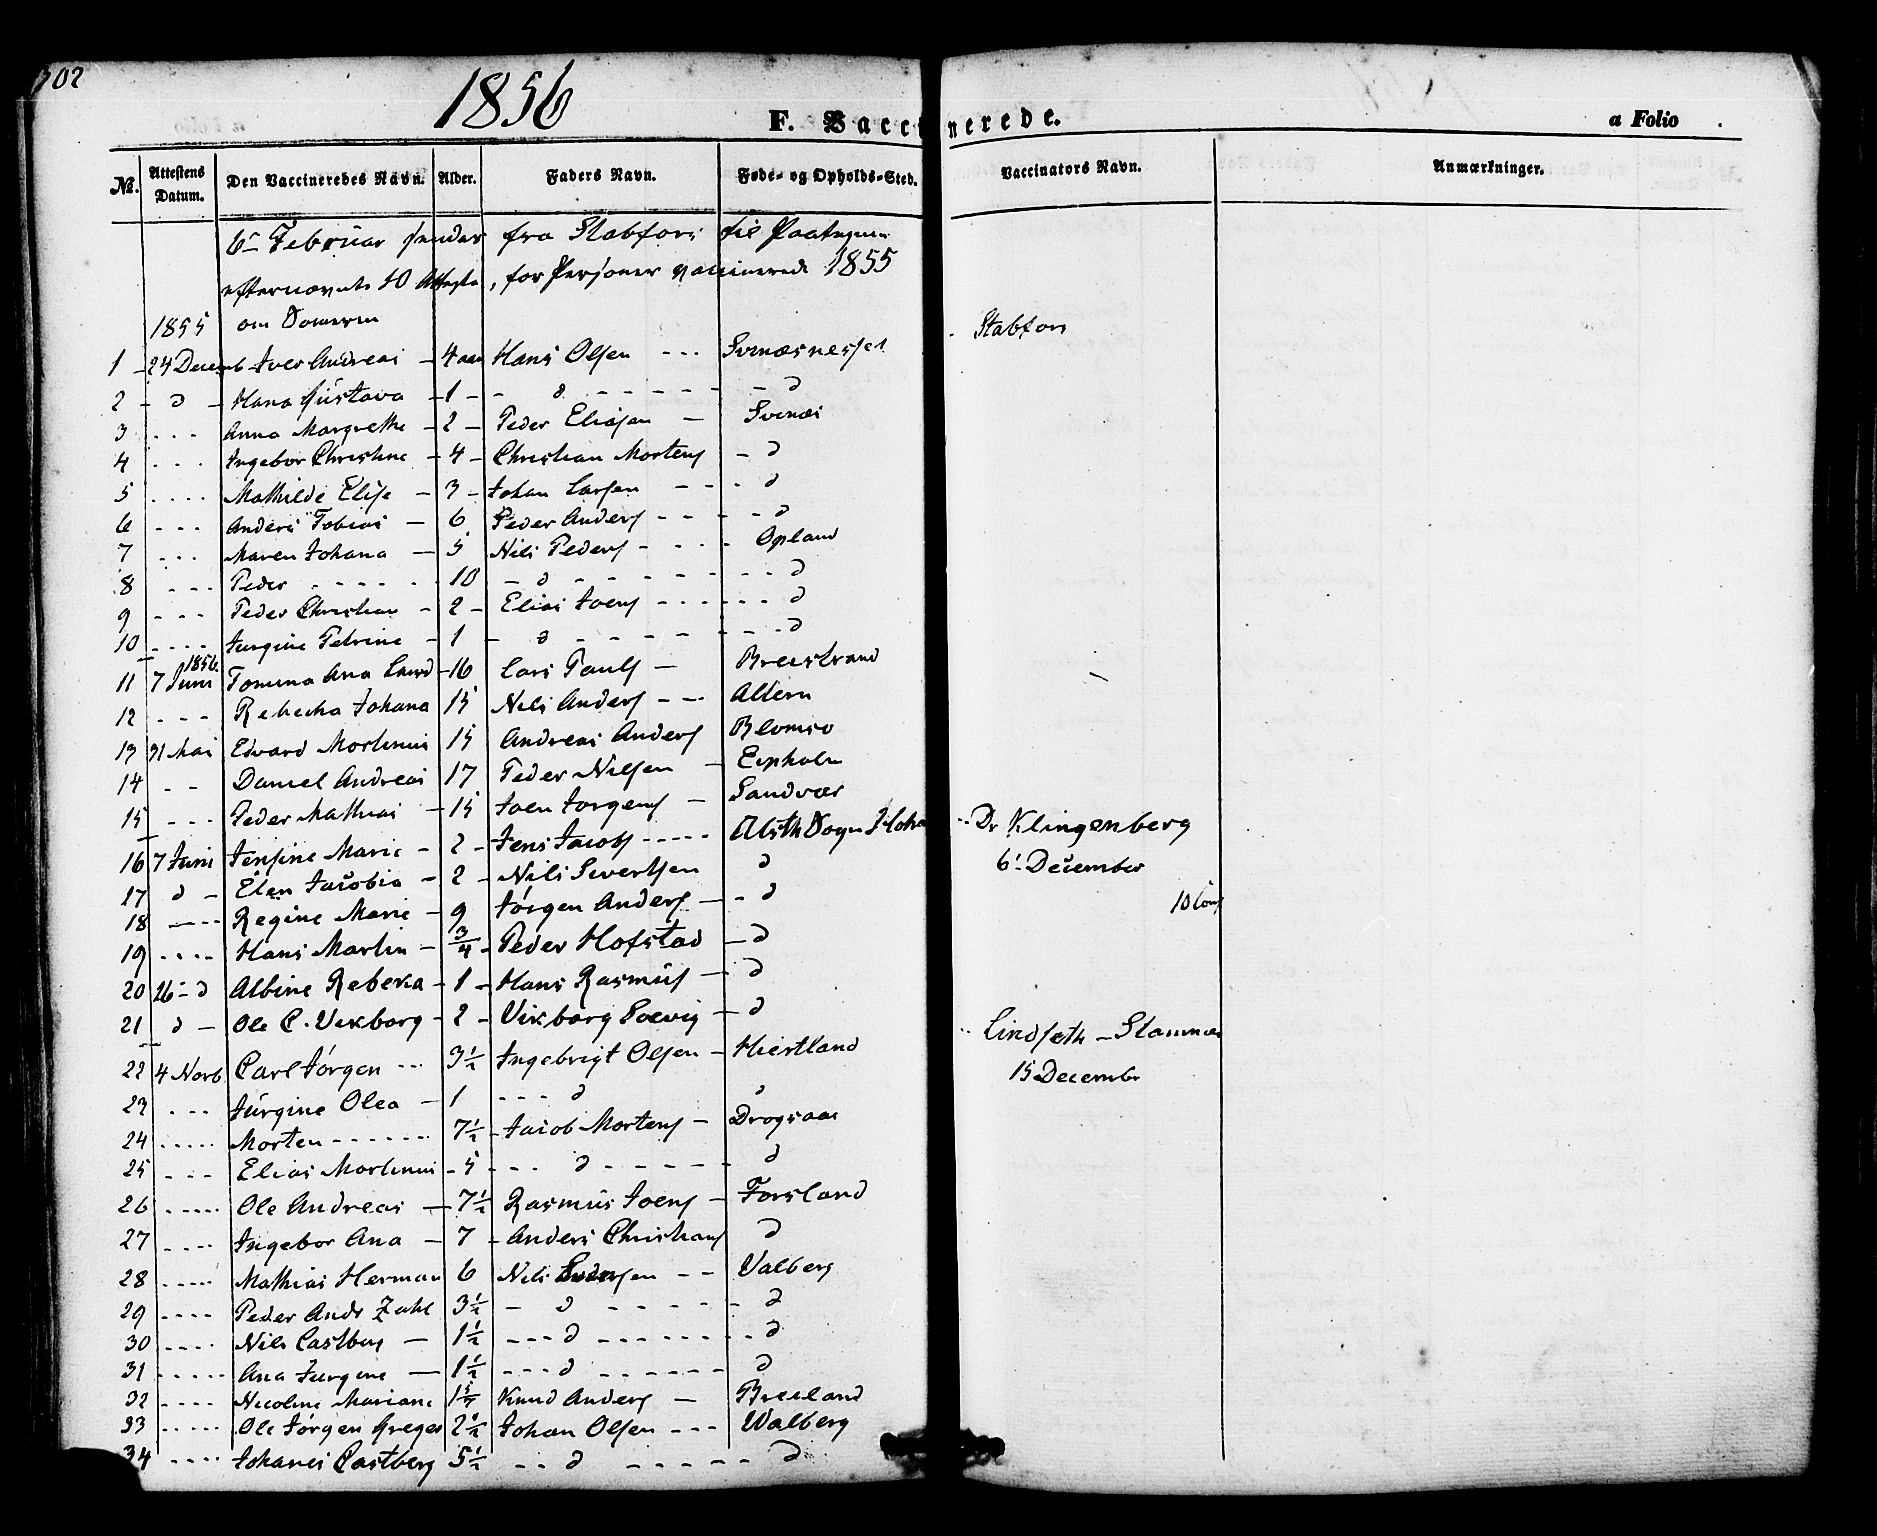 702
1856
F. Vaccinerede.
a Folio
No. Attestens Datum. Den Vaccineredes Navn. Alder. Faders Navn. Føde- og Opholds-Sted. Vaccinators Navn. Anmærkninger.
6te Februar sender fra Stabfors til
efternævnte 10 Attester, for Personer vaccinerede 1855
1855 om Sommeren Stabfors
1 24 Decemb Iver Andreas 4 aar Hans Olsen Svinæsnesset
2 d Hana Gustava 1 d d
3 Anna Margrethe 2 Peder Eliasen Svinæs
4 Ingebor Christine 4 Christian Mortens d
5 Mathilde Elise 3 Johan Larsen d
6 Anders Tobias 6 Peder Anders d
7 Maren Johana 5 Nils Peders Opland
8 Peder 10 d d
9 Peder Christian 2 Elias Joens d
10 Jurgine Petrine 1 d d
1856
11 7 Juni Tomina Ana 16 Lars Pauls Breistrand
12 Rebecka Johana 15 Nils Anders Alteren
13 31 Mai Edvard Mortinius 15 Andreas Anders Blomsø
14 Daniel Andreas 17 Peder Nilsen
15 Peder Mathias 15 Joen Jørgens Sandvær
16 7 Juni Jensine Marie 2 Jens Jacobs Dr Klingenberg
17 d Elen Jacobia 2 Nils Sivertsen d 6 December
18 Regine Marie 9 Jørgen Anders d
19 Hans Martin 3/4 Peder Hofstad d
20 26 d Albine Rebecka 1 Hans Rasmus d
21 d Ole C. Vikborg 2 Vikborg d
22 4 Novb Carl Jørgen 3 1/2 Ingebrigt Olsen Hiertland 15 Decembr
23 Jürgine Olea 1 d d
24 Morten 7 1/2 Jacob Mortens
25 Elias Mortinius 5 d d
26 Ole Andreas 7 1/2 Rasmus Joens Forsland
27 Ingebor Ana 7 Anders Christians d
28 Mathias Herman 6 Nils Valberg
29 Peder Andr Zahl 3 1/2 d d
30 Nils Castberg 1 1/2 d d
31 Ana Jurgine 1 1/2 d d
32 Nicoline Mariane Knud Anders Breiland
33 Ole Jørgen Greger 2 1/2 Johan Olsen Walberg
34 Johanes Castberg 5 1/2 d d